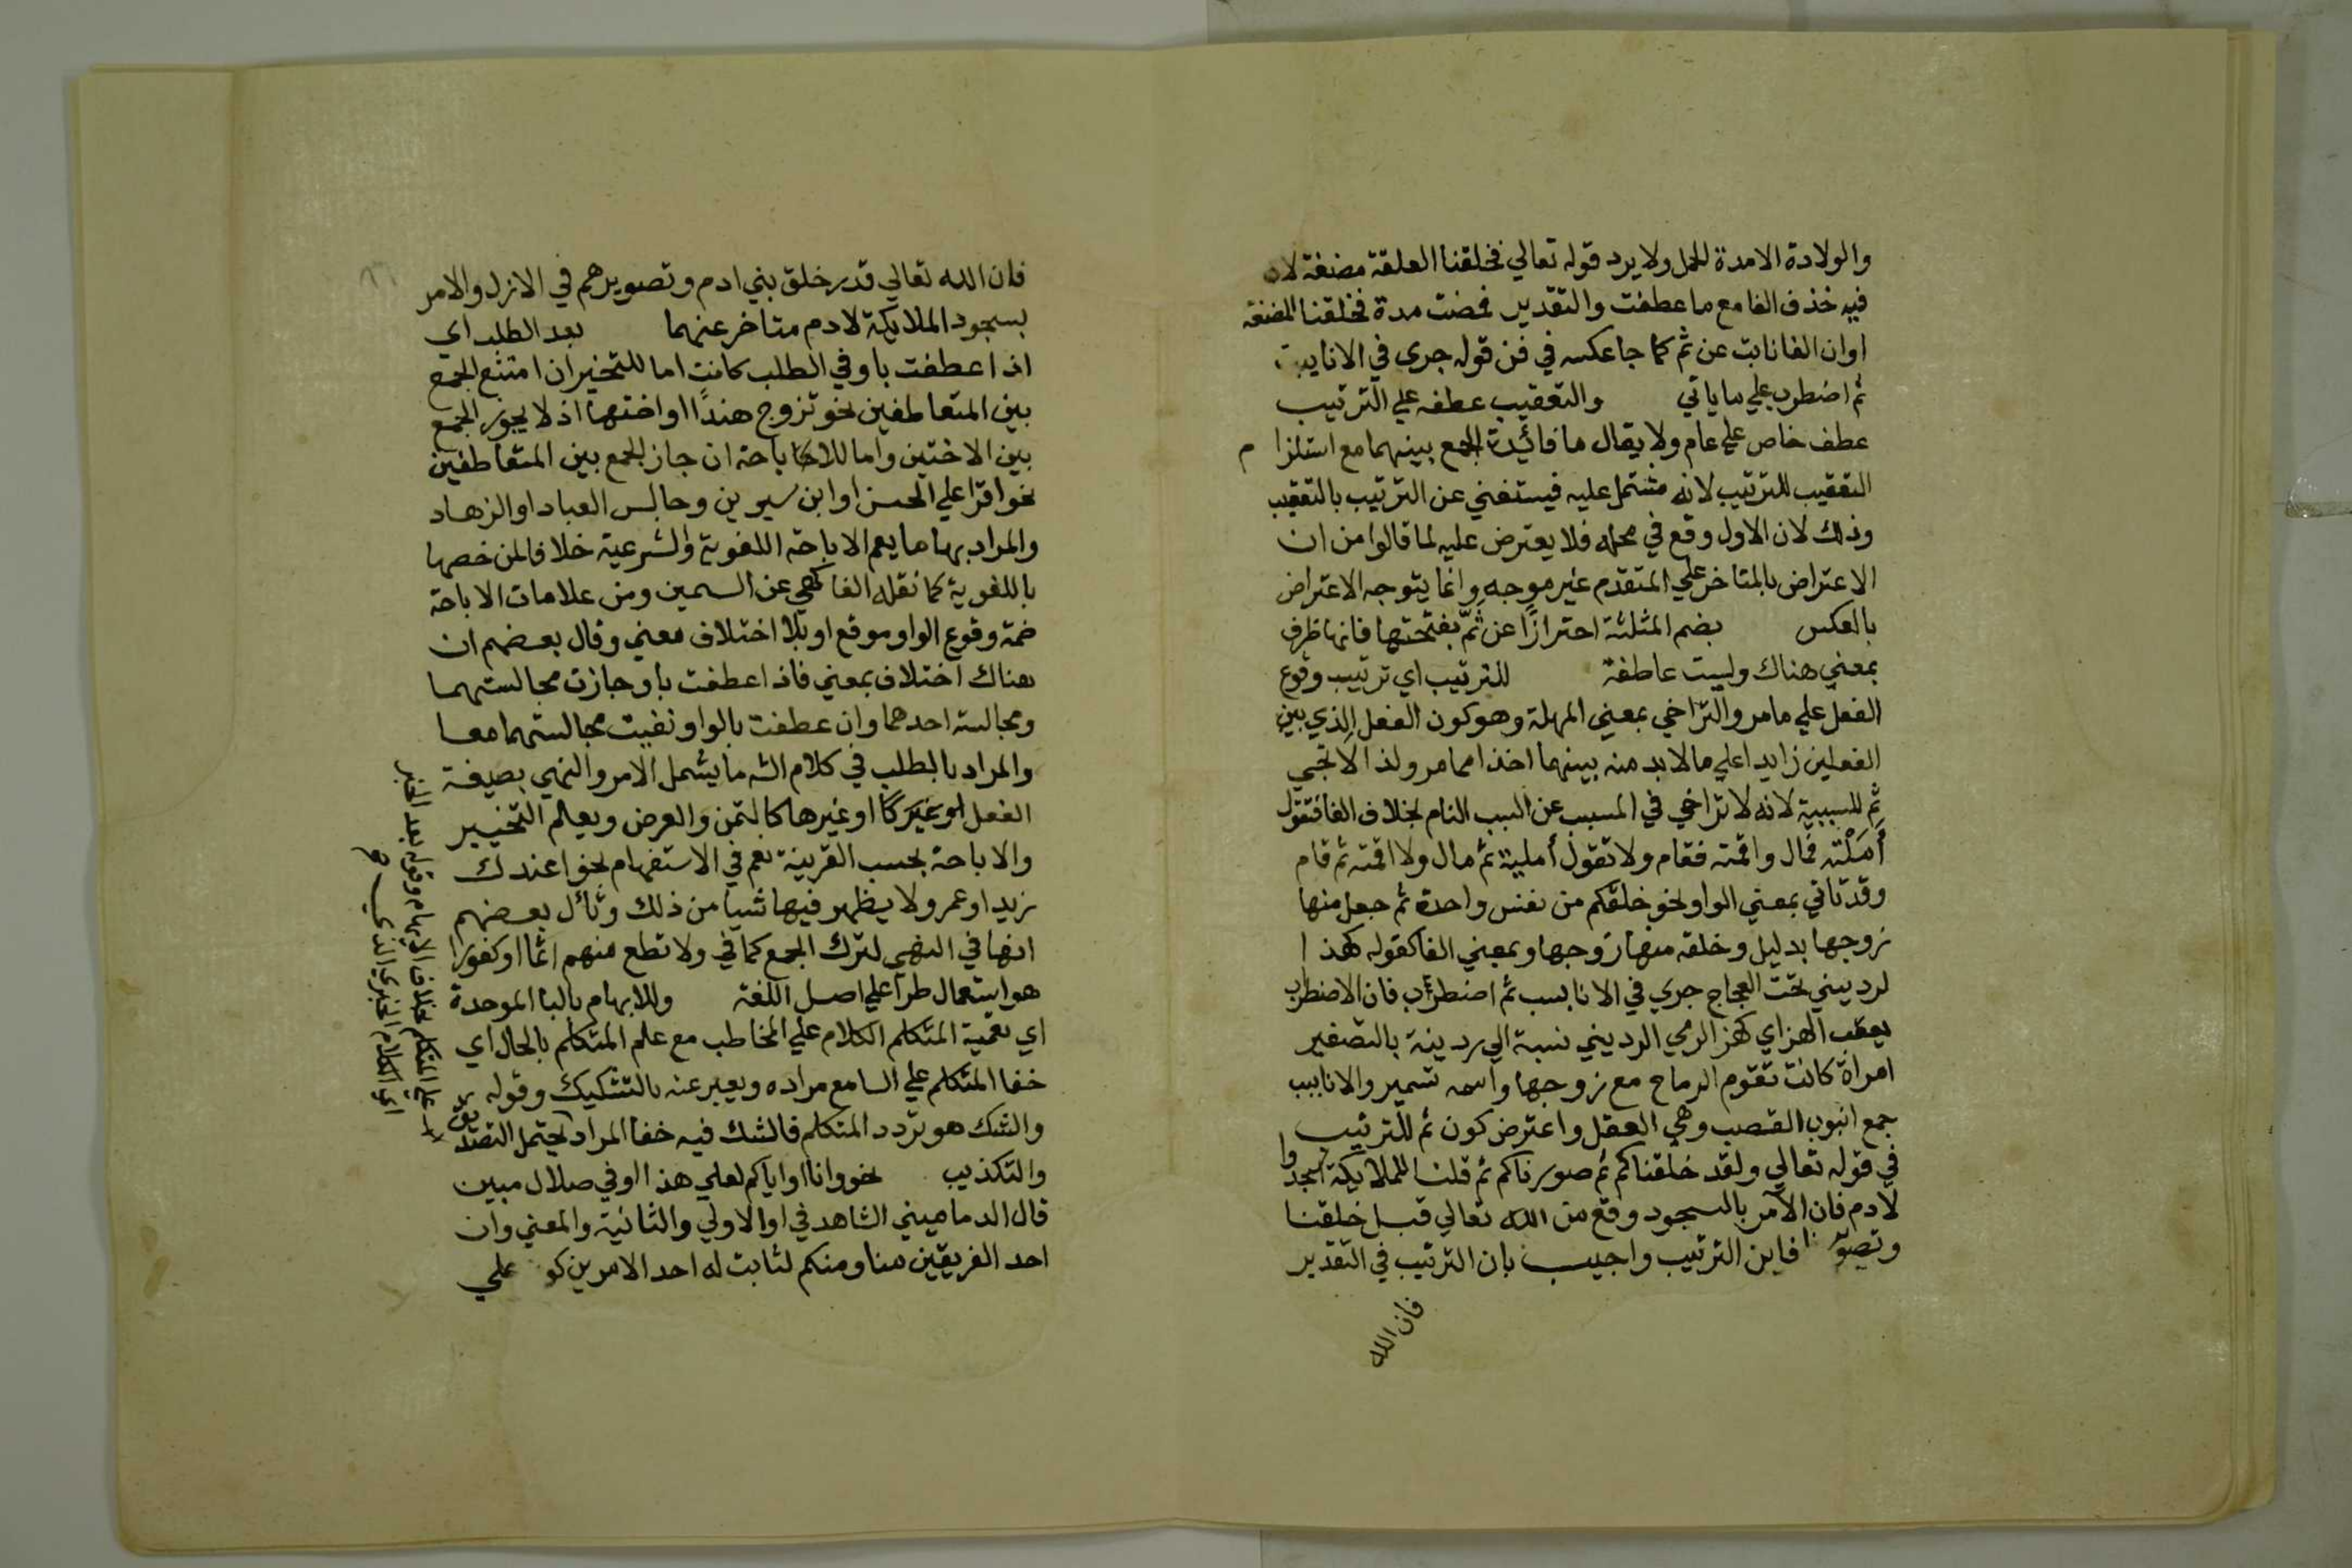 والولادة الامدة للحمل ولا يرد قوله تعالي فخلقنا العلقة مضغة لان
فيه حذف الفا مع ما عطفت والتقدير فمضت مدة فخلقنا المضغة
اوان الفا نابت عن ثم كما جا عكسه في فن قوله جري في الانابيب
ثم اضطرب علي ما ياتي والتعقيب عطفه علي الترتيب
عطف خاص علي عام ولا يقال ما فائدة الجمع بينهما مع استلزام
التعقيب للترتيب لانه مشتمل عليه فيستغني عن الترتيب بالتعقيب
وذلك لان الاول وقع في محله فلا يعترض عليه لما قالوا من ان
الاعتراض بالمتاخر علي المتقدم غير موجه وانما يتوجه الاعتراض
بالعكس بضم المثلثة احترازًا عن ثَمّ بفتحتها فانها ظرف
بمعني هناك وليست عاطفة للترتيب اي ترتيب وقوع
الفعل علي ما مر والتراخي بمعني المهلة وهو كون الفعل الذي بين
الفعلين زايدا علي ما لا بد منه بينهما اخذا مما مر ولذا لا تجي
ثم للسببية لانه لا تراخي في المسبب عن السبب التام بخلاف الفا فتقول
أَمَلْته فمال واقمته فقام ولا تقول أملته ثم مال ولا اقمته ثم قام
وقد تاتي بمعني الواو نحو خلقكم من نفس واحدة ثم جعل منها
زوجها بدليل وخلقه منها زوجها وبمعني الفا كقوله كهذا
لرديني تحت العجاج جري في الانابيب ثم اضطرب فان الاضطراب
يعقب الهز اي كهز الرمح الرديني نسبة الي ردينة بالتصغير
امراة كانت تقوم الرماح مع زوجها واسمه سمير والانابيب
جمع انبوب القصب وهي العقل واعترض كون ثم للترتيب
في قوله تعالي ولقد خلقناكم ثم صورناكم ثم قلنا للملايكة اسجدوا
لادم فان الامر بالسجود وقع من الله تعالي قبل خلقنا
وتصو نا فاين الترتيب واجيب بان الترتيب في التقدير
فان الله
فان الله تعالي قدر خلق بني ادم وتصويرهم في الازل والامر
بسجود الملايكة لادم متاخر عنهما بعد الطلب اي
اذا عطفت باو في الطلب كانت اما للتخيران امتنع الجمع
بين المتعاطفين نحو تزوج هندًا او اختها اذ لا يجوز الجمع
بين الاختين واما للاباحة ان جاز الجمع بين المتعاطفين
نحو اقرا علي الحسن او ابن سيرين وجالس العباد او الزهاد
والمراد بها ما يعم الاباحة اللغوية والشرعية خلافا لمن خصها
باللغوية كما نقله الفاكهي عن السمين ومن علامات الاباحة
صحة وقوع الواو موقع او بلا اختلاف معني وقال بعضهم ان
هناك اختلاف بمعني فاذا عطفت باو جازت مجالستهما
ومجالسة احدهما وان عطفت بالواو نفيت مجالستهما معا
والمراد بالطلب في كلام الشـ ما يشمل الامر والنهي بصيغة
الفعل او غيرها كالتمن والعرض ويعلم التخيير
والاباحة بحسب القرينة نعم في الاستفهام نحو اعندك
زيد او عمر ولا يظهر فيها شيا من ذلك وقال بعضهم
انها في النهي لترك الجمع كما في ولا تطع منهم اثما او كفورا
هو استعمال طرا علي اصل اللغة وللابهام بالبا الموحدة
اي تعمية المتكلم الكلام علي المخاطب مع علم المتكلم بالحال اي
خفا المتكلم علي السامع مراده ويعبر عنه بالتشكيك وقوله
والشك هو تردد المتكلم فالشك فيه خفا المراد يحتمل التصديق
والتكذيب نحو وانا او اياكم لعلي هذا او في ضلال مبين
قال الدماميني الشاهد في او الاولي والثانية والمعني وان
احد الفريقين منا ومنكم لثابت له احد الامرين كو علي
علي المتكلم بخلاف الابهام وقوله بعد الخبر
اي الكلام الخبري الذي